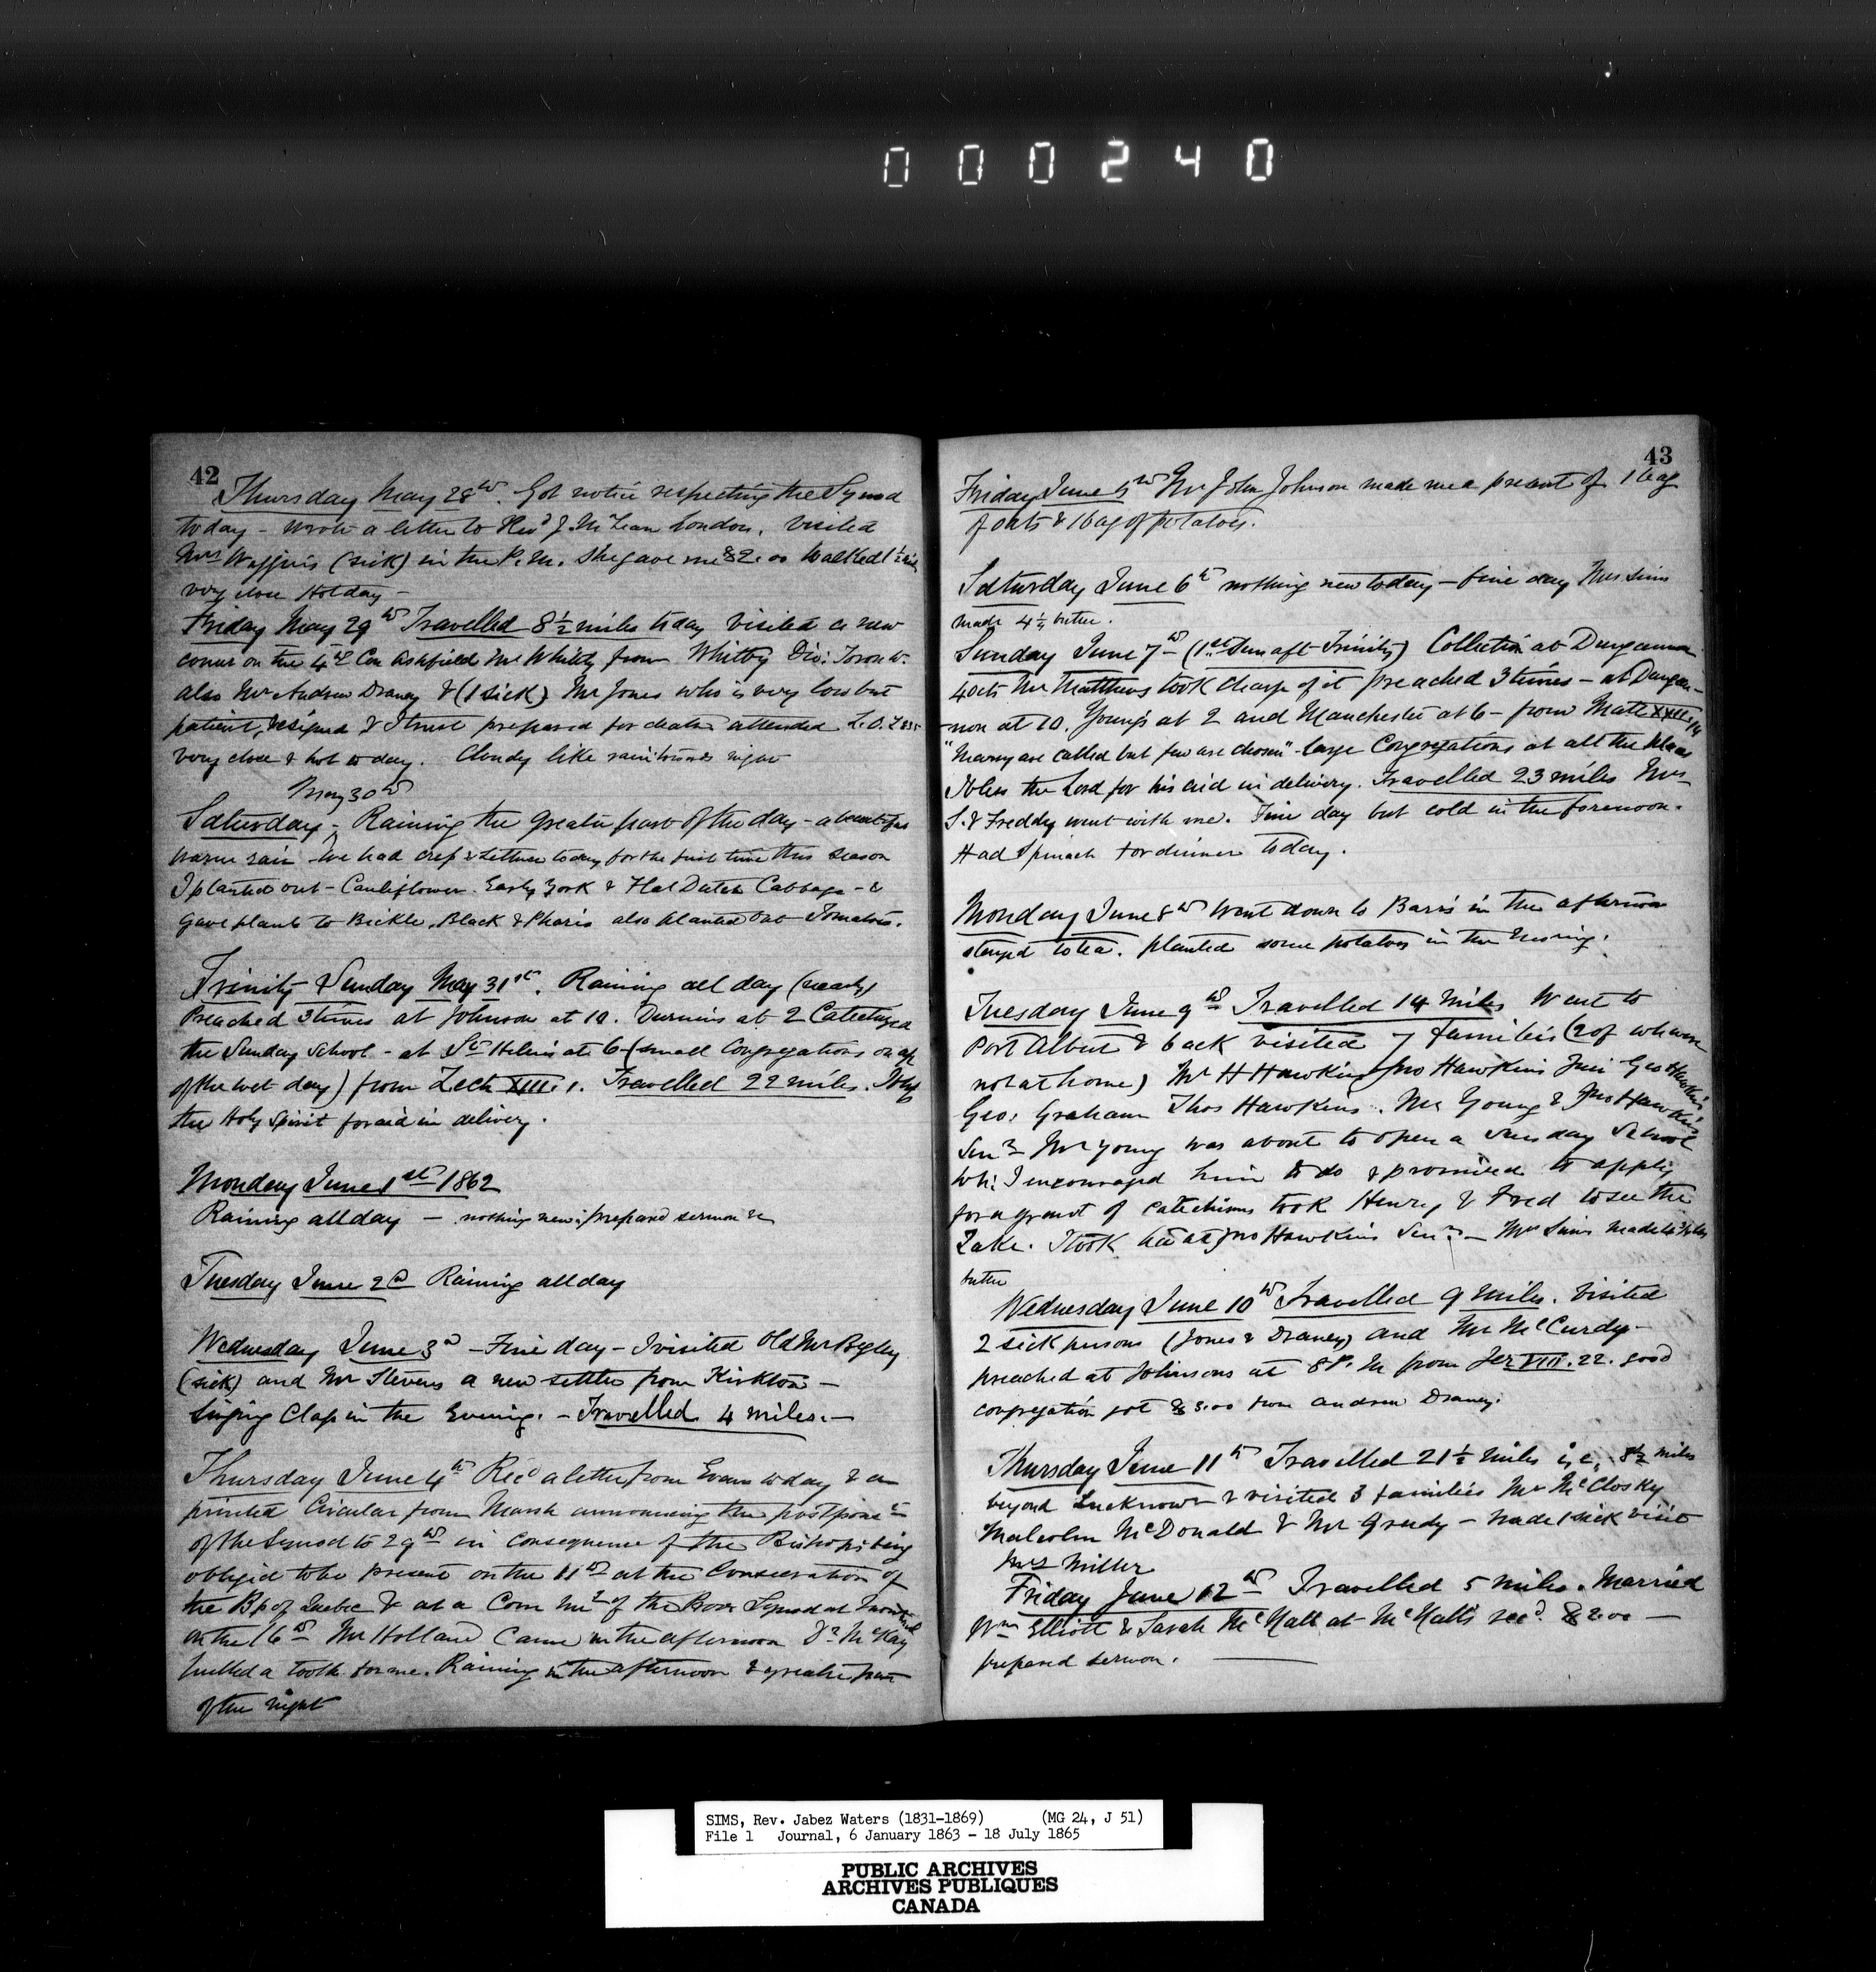 000240
42
Thursday May 28th. Got notice respecting the Synod
today - wrote a letter to Revd J. McLean London. Visited
Mrs (sick) in the P.M. She gave me $2.00 Walked 1½
very close Hot day -
Friday May 29th Travelled 8½ miles today visited a new
comer on the 4th Con Ashfield Mr Whitty from Whitby Dio:
also Mr Andrew Draney & (1 sick) Mr Jones who is very low but
patient, resigned & I trust prepared for death attended L.O.L
very close & hot today. Cloudy like rain towards night
May 30th
Saturday - Raining the greater part of the day - a beautiful
warm rain - We had cress & Lettuce today for the first time this season
I planted out - Cauliflower. Early York & Flat Dutch Cabbage - &
gave plants to Bickle, Black & Pharis also planted out Tomatoes.
Trinity Sunday May 31st. Raining all day (nearly)
Preached 3 times at Johnson at 10. Durnins at 2 Catechized
the Sunday School - at St Helens at 6 (small Congregations on a/c
of the wet day) from Zech XIII.1. Travelled 22 miles.
the Holy Spirit for aid in delivery.
Monday June 1st 1862
Raining all day - nothing new: prepared sermon &c
Tuesday June 2d Raining all day
Wednesday June 3d - Fine day - I visited Old Mr Begley
(sick) and Mr Stevens a new settler from Kirkton -
Singing Class in the Evening. - Travelled 4 miles. -
Thursday June 4th Recd a letter from Evans today & a
printed Circular from Marsh announcing the
of the Synod to 29th in consequence of the Bishops being
obliged to be present on the 11th at the Consecration of
the Bp of Quebec & at a Com of the Prov Synod at Montreal
on the 16th Mr Holland Came in the afternoon Dr McKay
pulled a tooth for me. Raining in the afternoon & greater part
of the night
43
Friday June 5th Mr John Johnson made me a present of 1 bag
of oats & 1 bag of potatoes.
Saturday June 6th nothing new today - fine day Mrs Sims
made 4¼ butter.
Sunday June 7th (1st Sun aft Trinity) Collection at Dungannon
40cts Mr Matthews took charge of it preached 3 times - at Dungan-
non at 10. Youngs at 2 and Manchester at 6 - from Matt XXII.14
"Many are called but few are chosen" - large Congregations at all the places
I bless the Lord for his aid in delivery. Travelled 23 miles Mrs
S. & Freddy went with me. Fine day but cold in the forenoon.
Had Spinach for dinner today.
Monday June 8th Went down to Barrs in the afternoon
stayed to tea. planted some potatoes in the Evening.
Tuesday June 9th Travelled 14 miles Went to
Port Albert & back visited 7 families (2 of whom
not at home) Mr H Hawkins Jno Hawkins Jun Geo Hawkins
Geo: Graham Thos Hawkins. Mr Young & Jno Hawkins
Senr Mr Young was about to open a Sunday School
wh: I encouraged him to do & promised to apply
for a grant of Catechisms took Henry & Fred to see the
Lake. I took tea at Jno Hawkins Senr - Mrs Sims made
butter
Wednesday June 10th Travelled 9 miles. Visited
2 sick persons (Jones & Draney) and Mr McCurdy -
preached at Johnsons at 8 P.M from Jer VIII.22. good
congregation got $3.00 from Andrew Draney.
Thursday June 11th Travelled 21½ miles i.e. 8½ miles
beyond Lucknow & visited 3 families Mr McClosky
Malcolm McDonald & Mr Grundy - made 1 sick visit
Mrs Miller
Friday June 12th Travelled 5 miles. Married
Wm Elliott & Sarah McNall at McNalls recd. $2.00 -
prepared sermon.
SIMS, Rev. Jabez Waters (1831-1869) (MG 24, J 51)
File 1 Journal, 6 January 1863 - 18 July 1865
PUBLIC ARCHIVES
ARCHIVES PUBLIQUES
CANADA